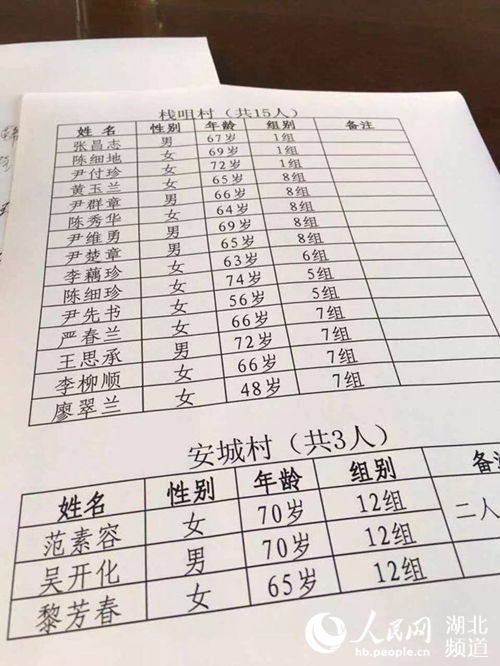 栈咀村（共15人）
姓名 性别 年龄 组别 备注
张昌志 男 67岁 1组
陈细地 女 69岁 1组
尹付珍 女 72岁 1组
黄玉兰 女 65岁 8组
尹群章 男 66岁 8组
陈秀华 女 64岁 8组
尹维勇 男 69岁 8组
尹楚章 男 65岁 8组
李藕珍 女 63岁 6组
陈细珍 女 74岁 5组
尹先书 女 56岁 5组
严春兰 女 66岁 7组
王思承 男 72岁 7组
李柳顺 女 66岁 7组
廖翠兰 女 48岁 7组
安城村（共3人）
姓名 性别 年龄 组别 备注
范素容 女 70岁 12组 二人
吴开化 男 70岁 12组
黎芳春 女 65岁 12组
人民网 湖北频道
hb.people.cn